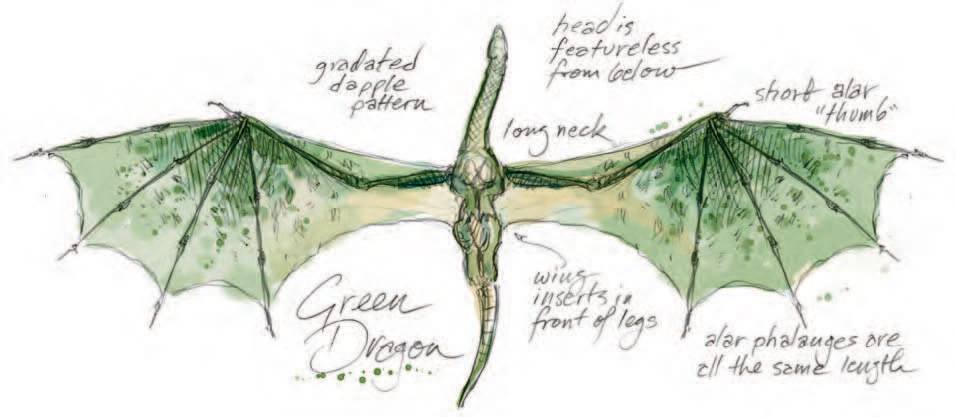 gradated
dapple
pattern
head is
featureless
from below
short alar
"thumb"
long neck
Green
Dragon
wing
inserts in
front of legs
alar phalanges are
all the same length